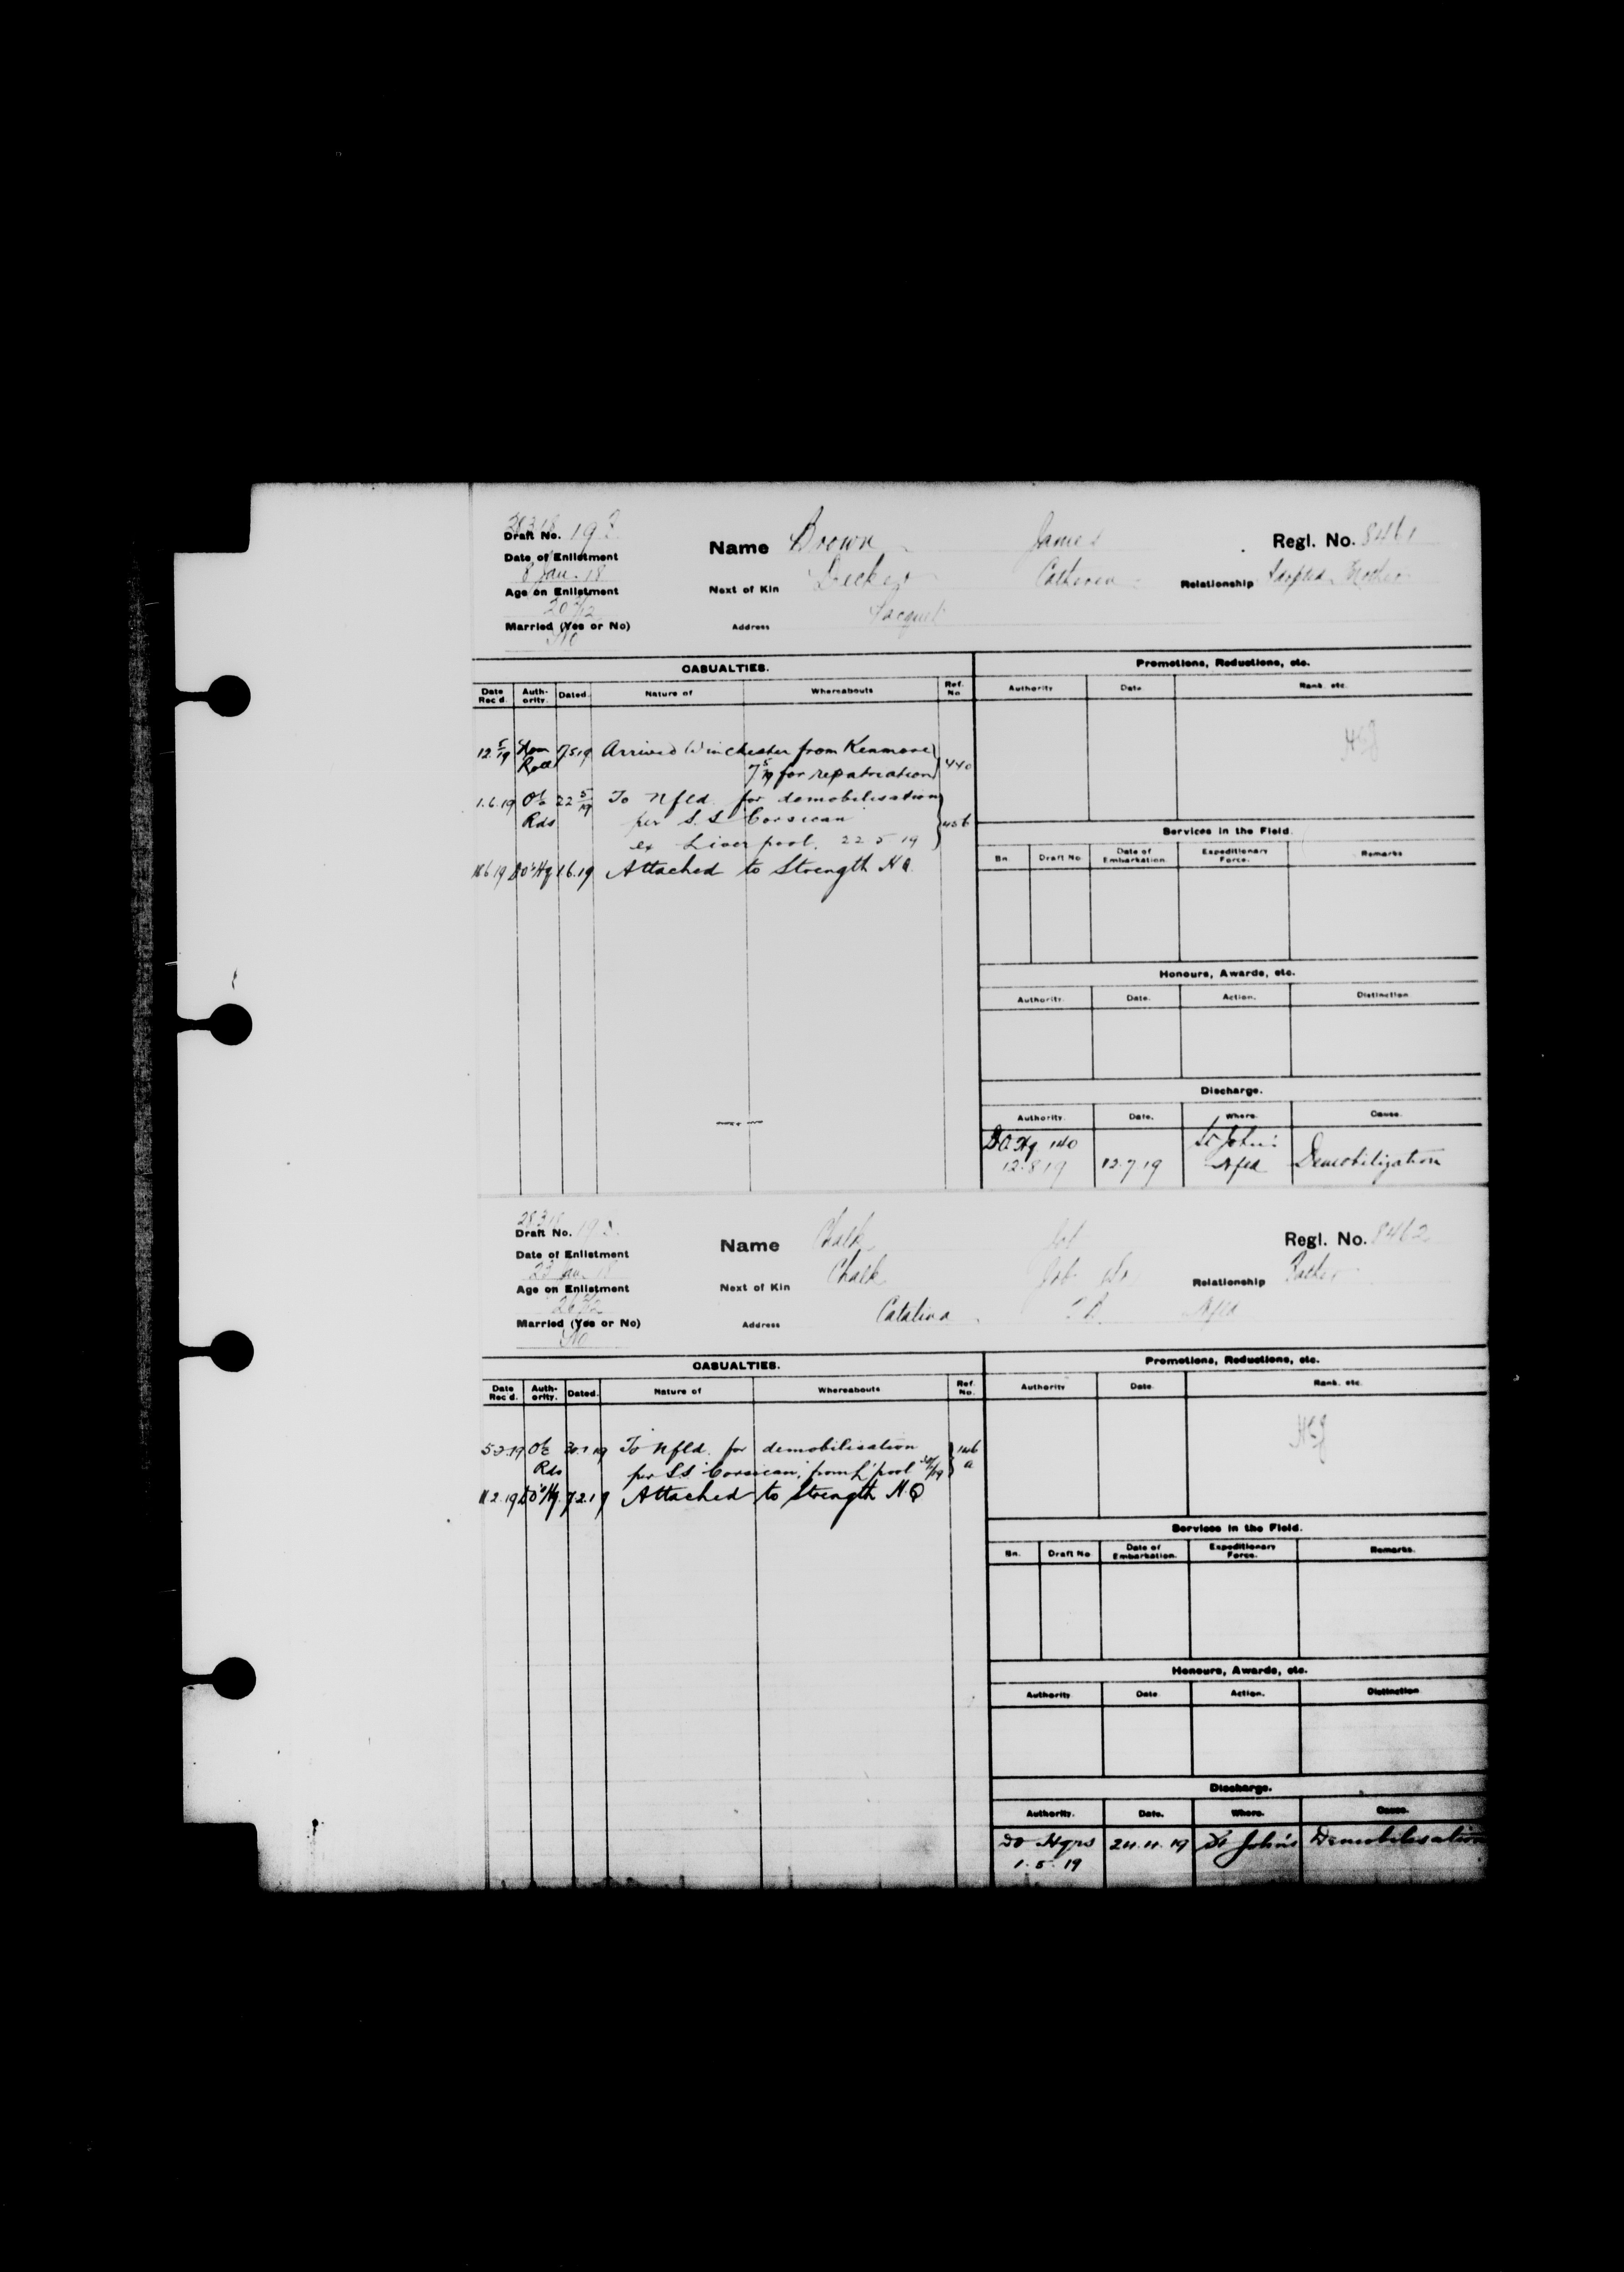 28.3.18
Draft No. 19
Name Brown James Regl. No. 8461
Date of Enlistment
8 Jan. 18
Next of Kin Catherine Relationship Adopted Mother
Age on Enlistment
Address
Married (Yes or No)
No
CASUALTIES.
Promotions, Reductions, etc.
Date Rec'd. Authority. Dated. Nature of Whereabouts Ref. No
Authority Date Rank. etc.
12 5/19 Nom Roll 7.5.19 Arrived Winchester from Kenmore
7 5/19 for repatriation 440
1.6.19 O i/c Rds 22 5/19 To Nfld. for demobilisation
per S.S. Corsican
ex Liverpool. 22 5 19
Services in the Field.
Bn. Draft No Date of Embarkation. Expeditionary Force. Remarks
6 19 DO Hq 1.6.19 Attached to Strength H.Q.
Honours, Awards, etc.
Authority. Date. Action. Distinction
Discharge.
Authority. Date. Where. Cause.
DO Hq 140 St John's
12.8.19 12.7.19 Nfld Demobilization
28.3.18
Draft No. 19
Name Chalk Job Regl. No. 8462
Date of Enlistment
23 Jan. 18
Next of Kin Chalk Job Relationship Father
Age on Enlistment
Address Catalina T.B. Nfld
Married (Yes or No)
No
CASUALTIES.
Promotions, Reductions, etc.
Date Rec'd. Authority. Dated. Nature of Whereabouts Ref. No.
Authority Date. Rank. etc.
5.2.19 O i/c Rds 30.1.19 To Nfld. for demobilisation 146
per S.S. "Corsican", from L'pool a
11 2.19 DO Hq. 7.2.19 Attached to Strength H.Q
Services in the Field.
Bn. Draft No Date of Embarkation. Expeditionary Force. Remarks.
Honours, Awards, etc.
Authority Date Action. Distinction
Discharge.
Authority. Date. Where. Cause.
DO Hqrs 24.4.19 St John's Demobilisation
1.5.19